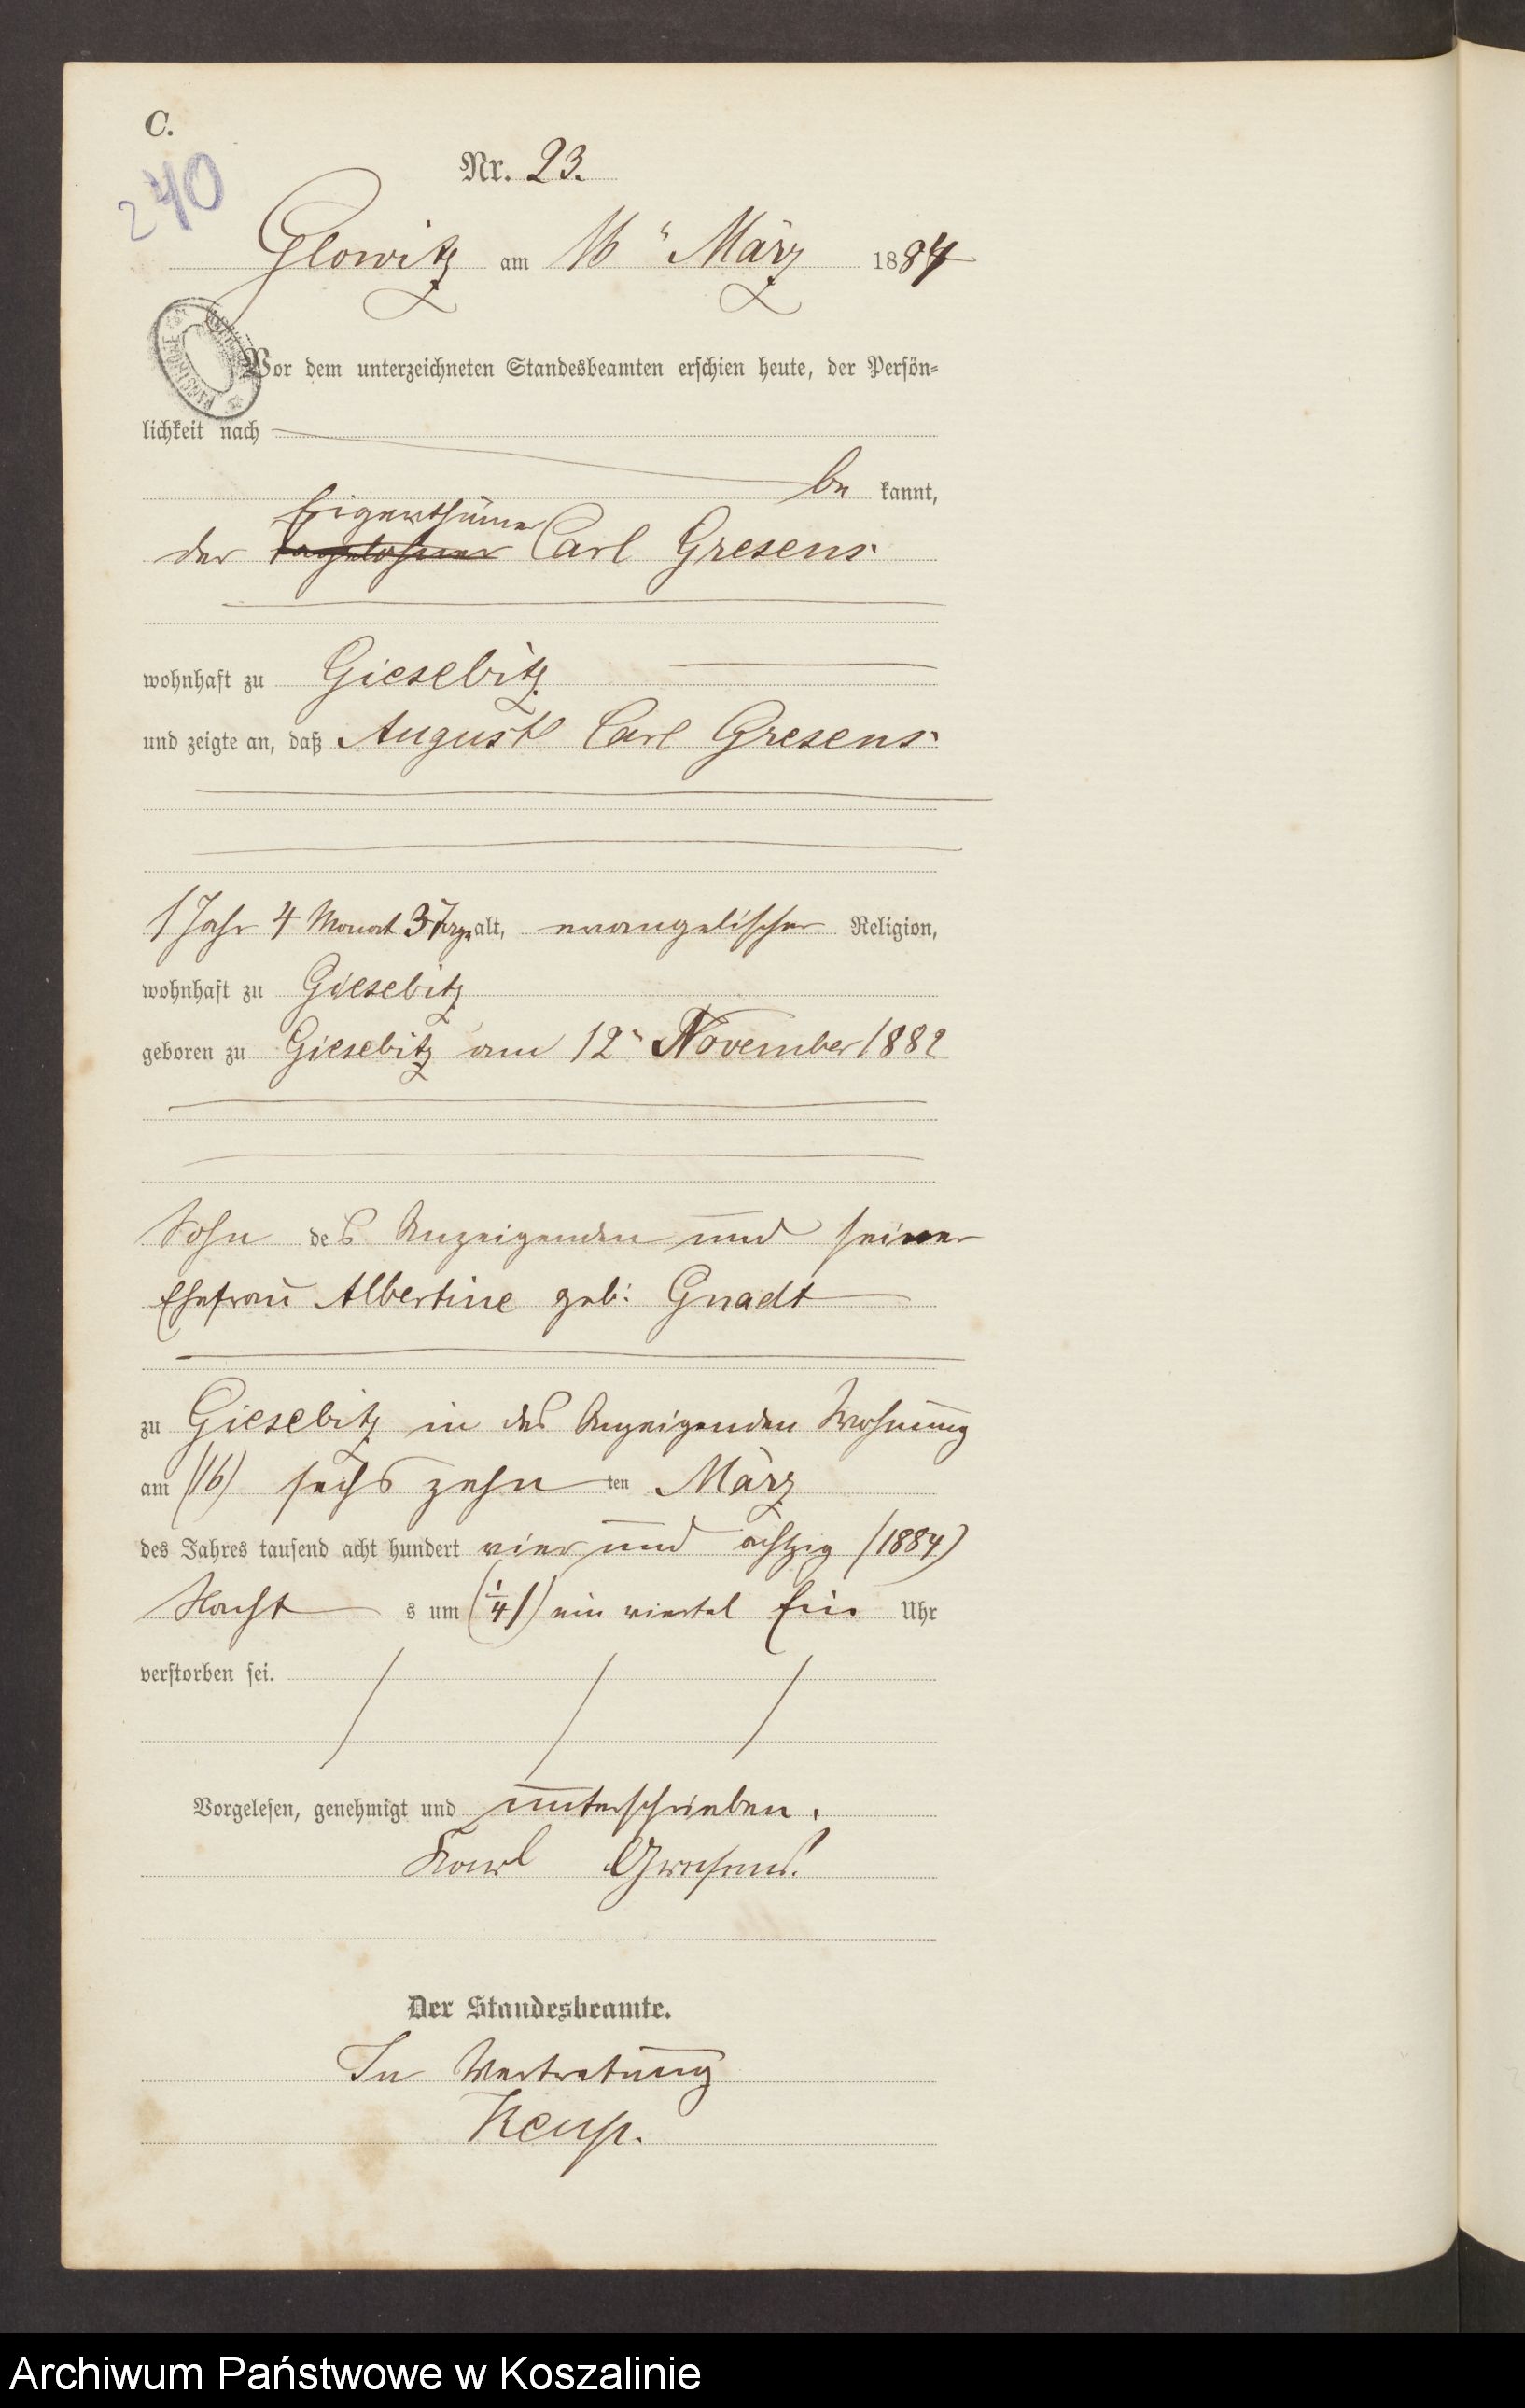 C.
240
Nr. 23.
Glowitz am 16" März 1884
Vor dem unterzeichneten Standesbeamten erschien heute, der Persön-
lichkeit nach
be kannt,
Eigenthümer
der Tagelöhner Carl Gresens
wohnhaft zu Giesebitz
und zeigte an, daß August Carl Gresens
1 Jahr 4 Monat 3 Tage alt, evangelischer Religion,
wohnhaft zu Giesebitz
geboren zu Giesebitz am 12" November 1882
Sohn des Anzeigenden und seiner
Ehefrau Albertine geb: Gnadt
zu Giesebitz in des Anzeigenden Wohnung
am (16) sechs zehn ten März
des Jahres tausend acht hundert vier und achtzig (1884)
Nacht s um (1/4 1) ein viertel Ein Uhr
verstorben sei.
Vorgelesen, genehmigt und unterschrieben.
Karl Gresens.
Der Standesbeamte.
In Vertretung
Archiwum Państwowe w Koszalinie